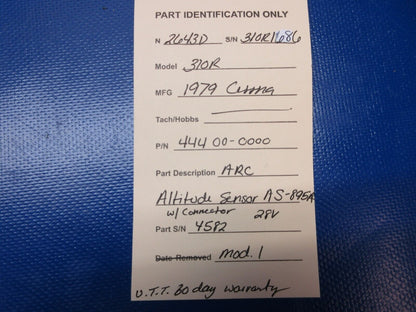 PART IDENTIFICATION ONLY
N 2643D S/N 310R1686
Model 310R
MFG 1979 Cessna
Tach/Hobbs
P/N 44400-0000
Part Description ARC
Altitude Sensor AS-895A
w/ Connector 28V
Part S/N 4582
Date Removed mod. 1
U.T.T. 30 day warranty